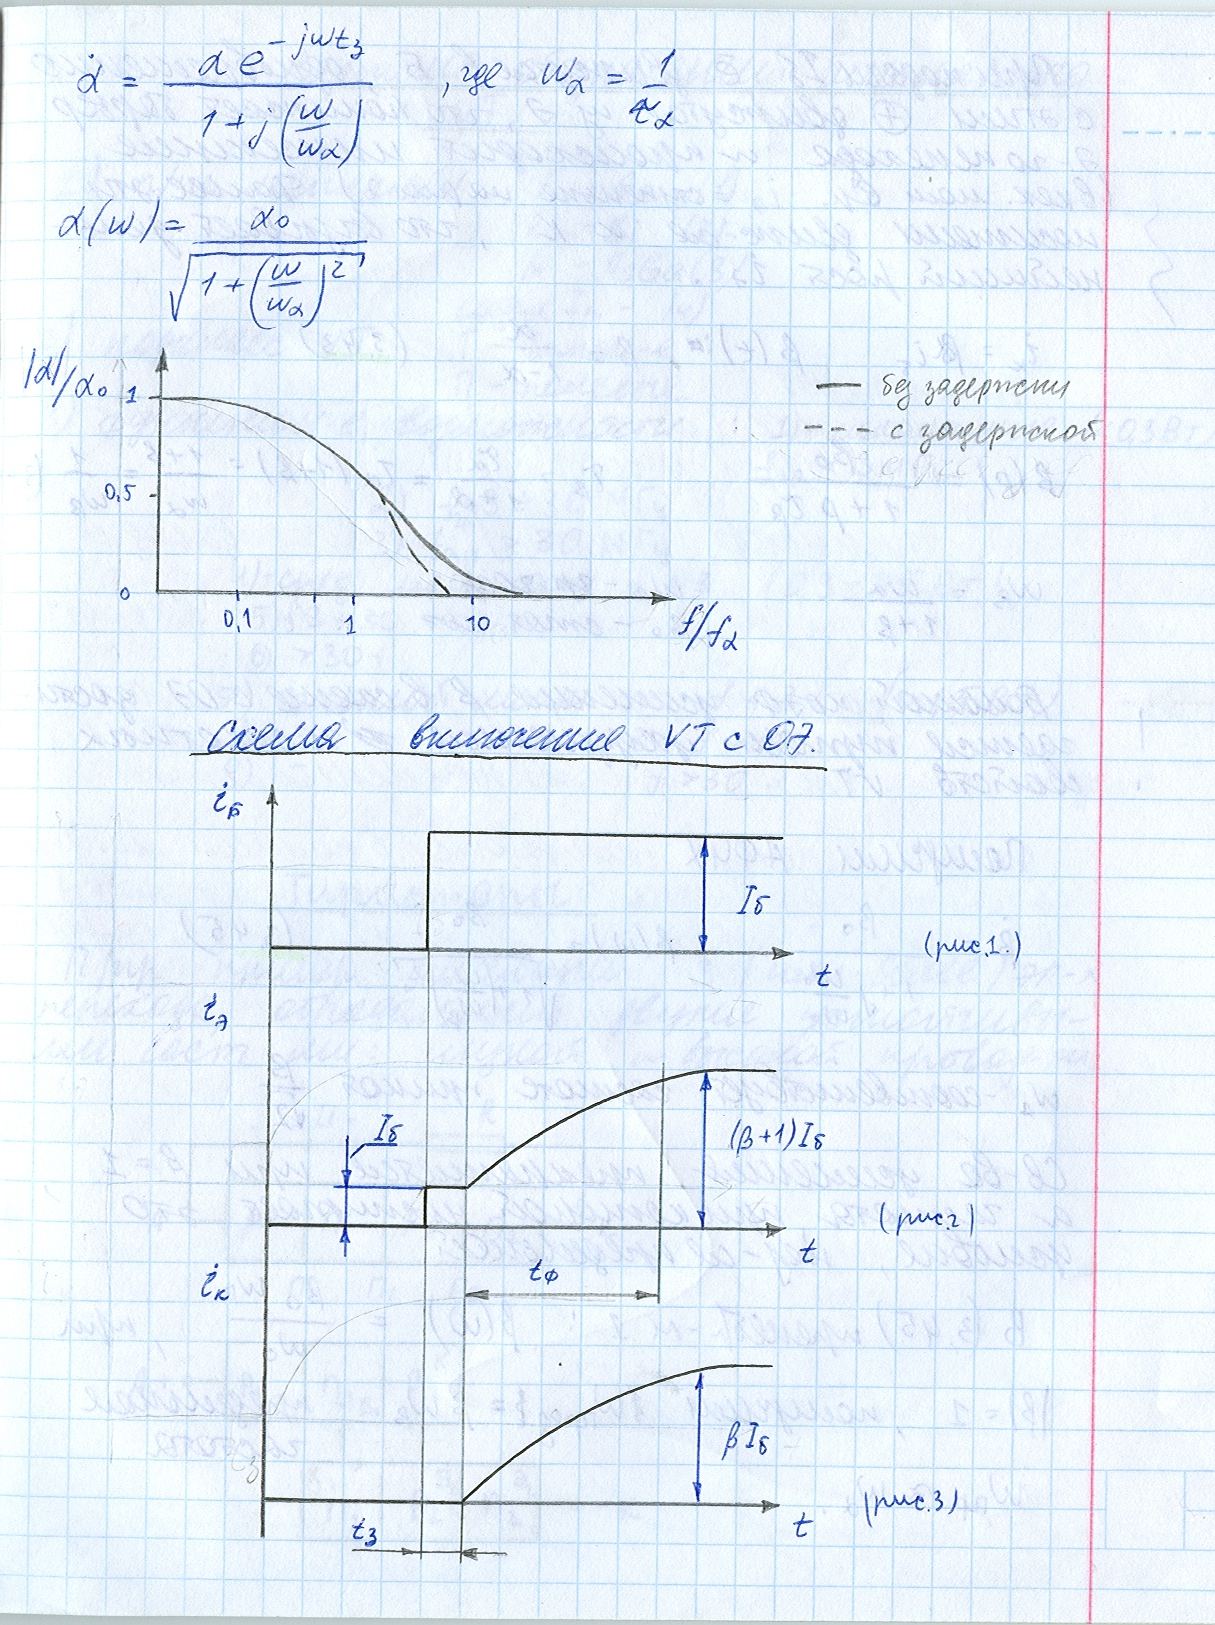 α̇ = α e^{-jωt_з} / (1 + j(ω/ω_α)) , где ω_α = 1/τ_α
α(ω) = α₀ / √(1 + (ω/ω_α)²)
|α|/α₀
1
0,5
0
0,1
1
10
f/f_α
— без задержки
--- с задержкой
Схема включение VT с ОЭ.
i_б
I_б
t
(рис.1.)
i_э
I_б
(β+1)I_б
t
(рис.2)
t_ф
i_к
βI_б
t
(рис.3)
t_з